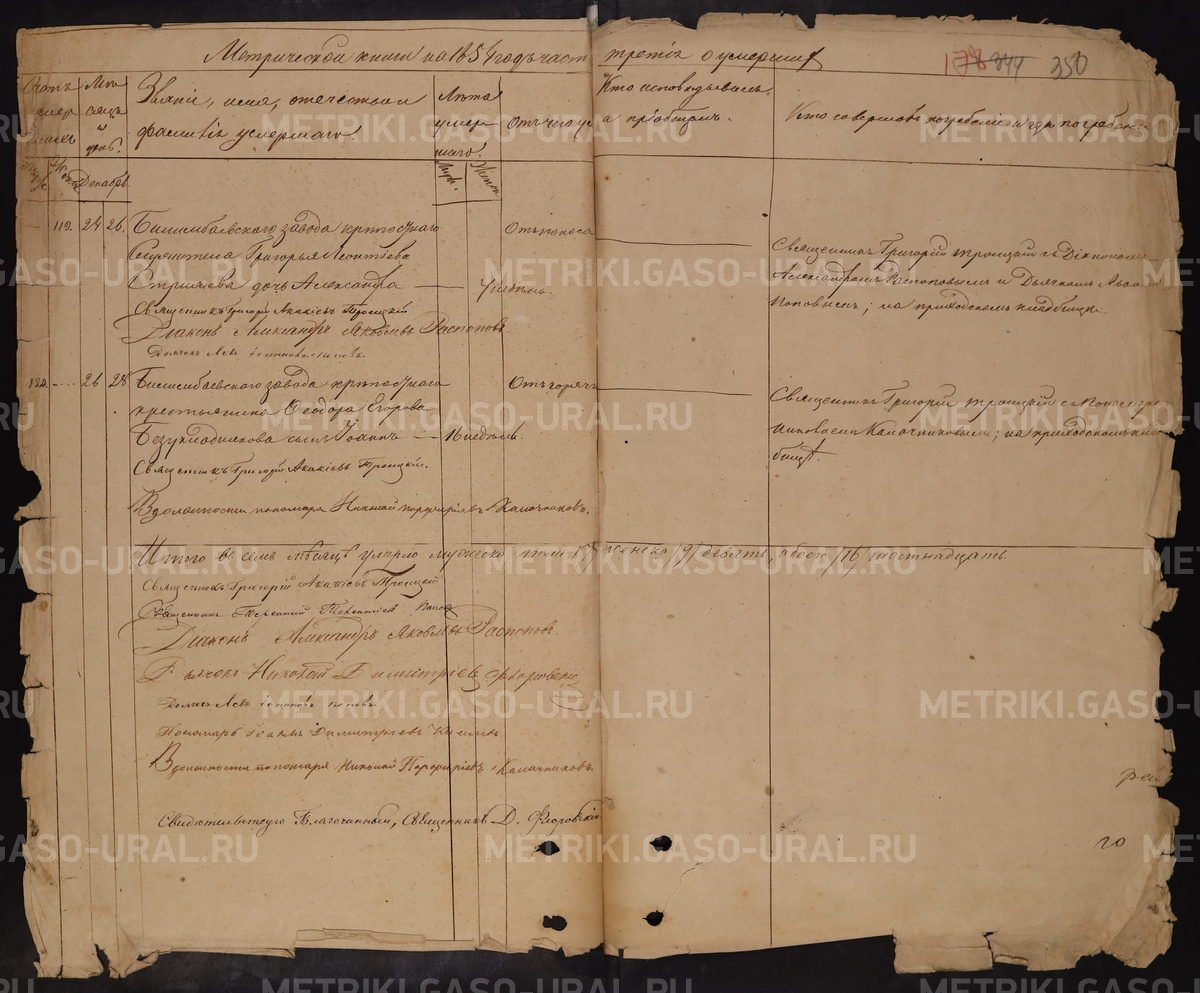 Метрической книги на 1854 годъ часть третія о умершихъ
178 344 350
Счетъ умершихъ
Мѣсяцъ и день.
Званіе, имя, отечество и фамилія умершаго
Лѣта умершаго.
Отъ чего
Кто исповѣдывалъ и пріобщалъ.
Кто совершалъ погребеніе и гдѣ погребены
Декабрь.
Муж. Женск.
112 24 26. Билимбаевскаго завода крѣпостнаго
Григорья Леонтіева
дочь Александра — недѣль.
Отъ поноса
Священникъ Григорій Троицкій съ Діакономъ
Александромъ Распоповымъ и Дьячкомъ Львомъ
Поповымъ; на приходскомъ кладбищѣ
Священникъ Григорій Акакіевъ Троицкій
Діаконъ Александръ Яковлевъ Распоповъ
Дьячекъ Левъ Іоанновъ Поповъ.
26 28 Билимбаевскаго завода крѣпостнаго
крестьянина Ѳеодора Егорова
сынъ Іоаннъ — 16 недѣль.
Отъ горячк
Священникъ Григорій Троицкій с Пономар
Калачниковымъ; на приходскомъ клад
бищѣ.
Священникъ Григорій Акакіевъ Троицкій.
В должности пономаря Николай Порфиріевъ Калачниковъ.
Итого в семъ мѣсяцѣ умерло мужеска пола 7 женска /9/ девять, обоего /16/ шестнадцать
Священникъ Григорій Акакіевъ Троицкій
Священникъ Терентій Терентіевъ Поповъ
Діаконъ Александръ Яковлевъ Распоповъ.
Дьячекъ Николай Димитріевъ
Дьячекъ Левъ Іоанновъ Поповъ
Пономарь Іоаннъ Димитріевъ
В должности пономаря Николай Порфиріевъ Калачниковъ.
Свидѣтельствую Благочинный, Священникъ Д. Флоровскій
го
METRIKI.GASO-URAL.RU